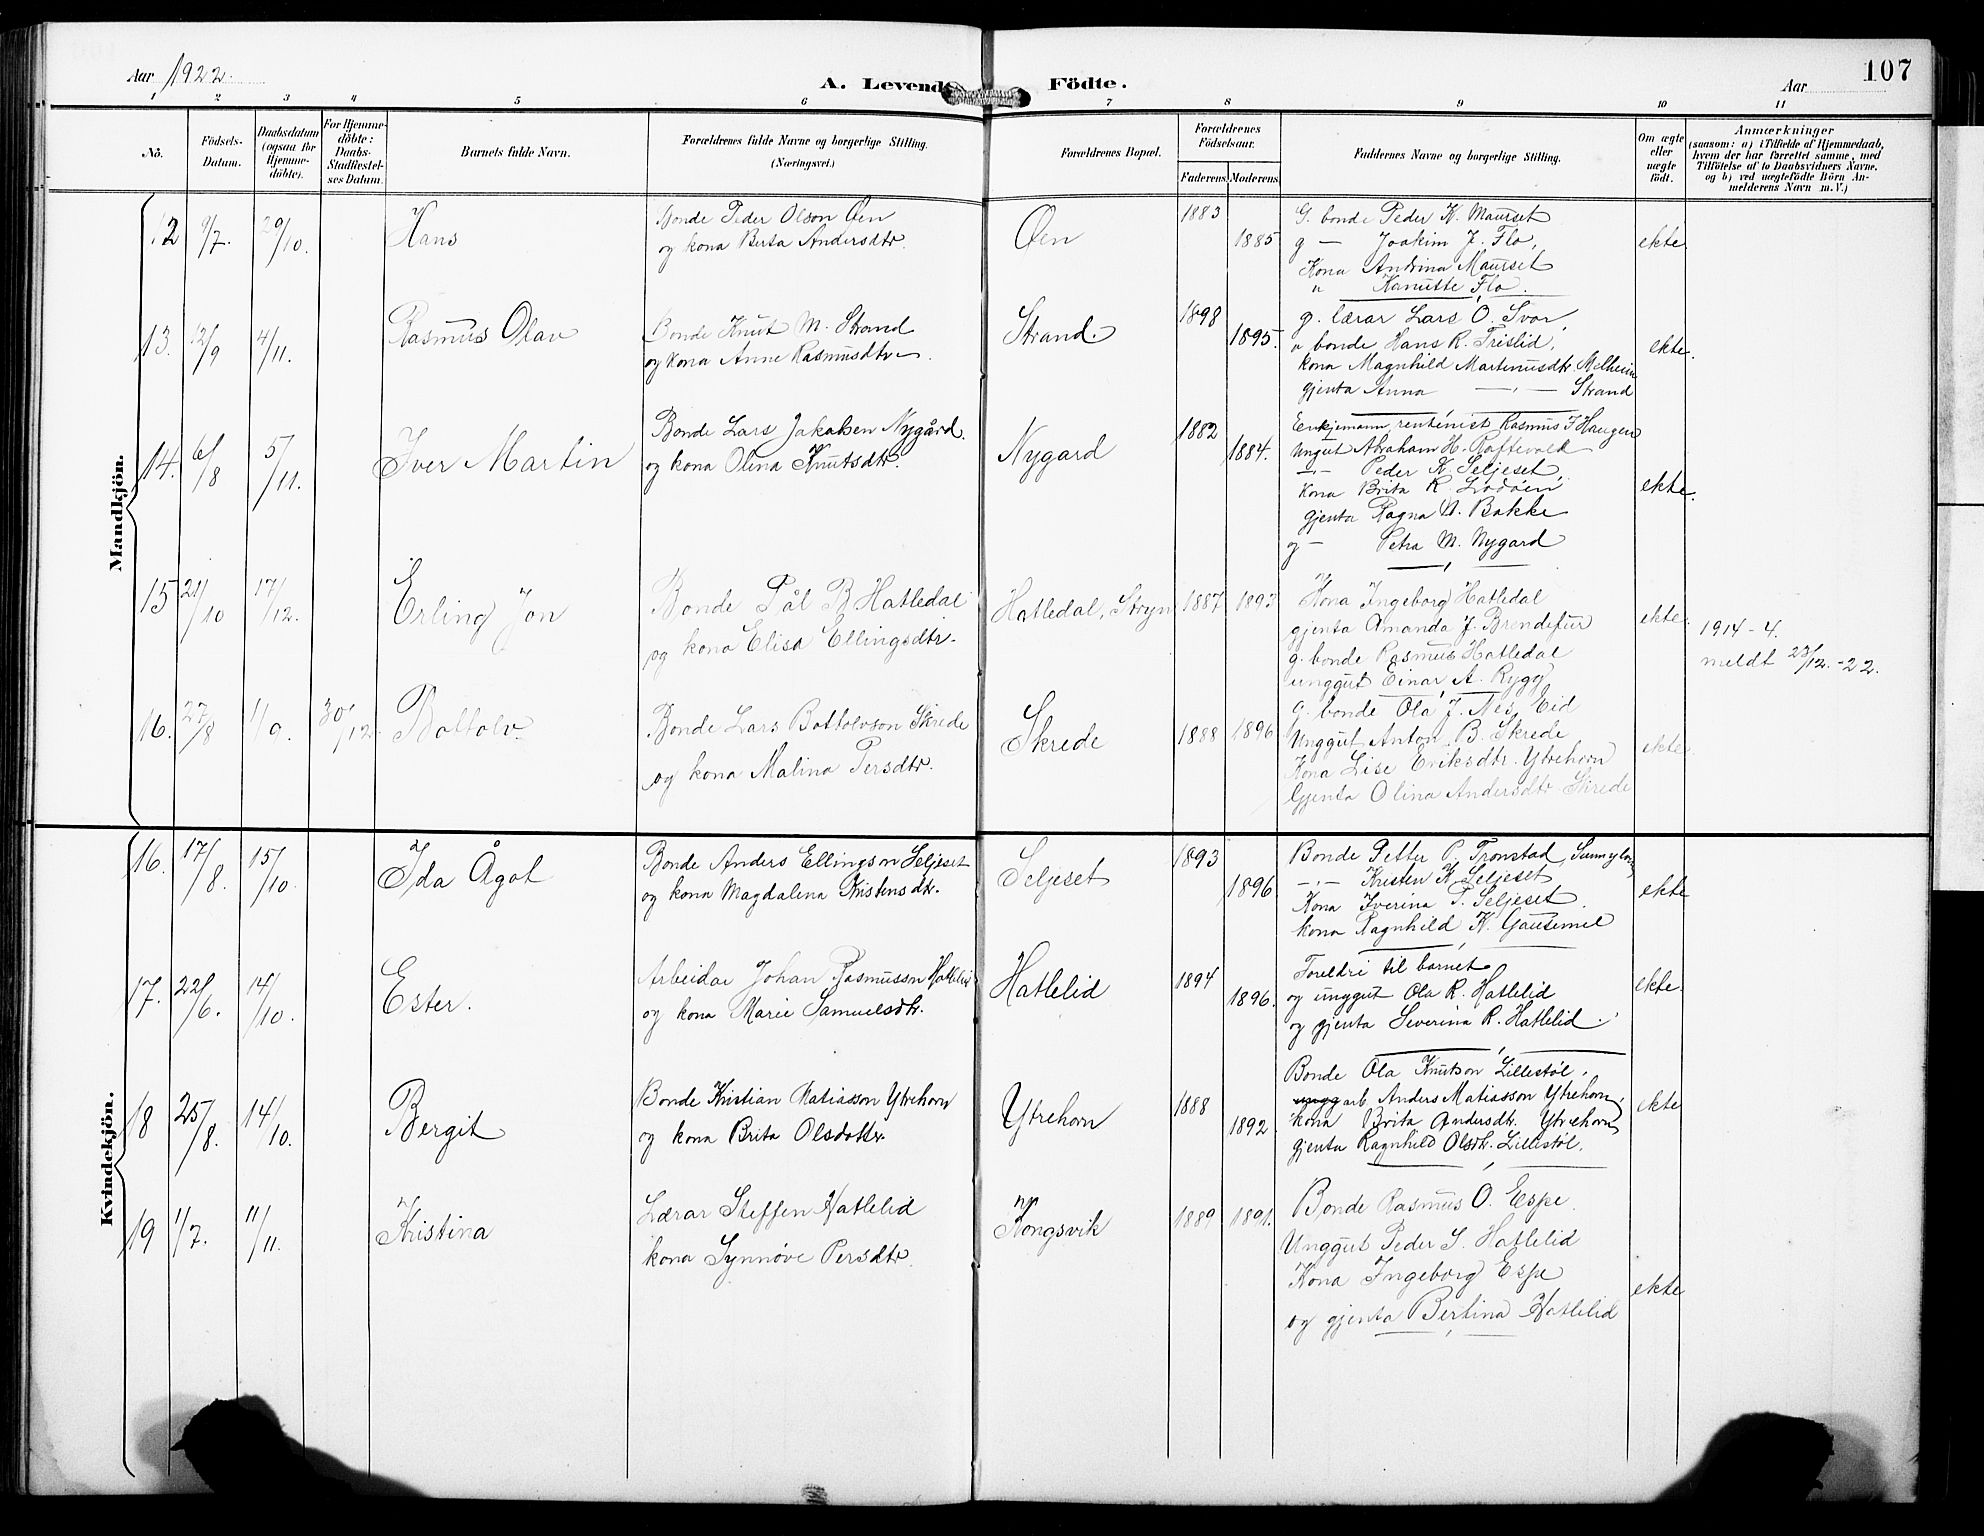 Aar 1922.
A. Levende Födte.
Aar
107
1 2 3 4 5 6 7 8 9 10 11
No.
Födsels-Datum.
Daabsdatum (ogsaa for Hjemme-döbte).
For Hjemme-döbte: Daabs-Stadfæstel-ses Datum.
Barnets fulde Navn.
Forældrenes fulde Navne og borgerlige Stilling. (Næringsvei.)
Forældrenes Bopæl.
Forældrenes Födselsaar.
Faderens. Moderens.
Faddernes Navne og borgerlige Stilling.
Om ægte eller uægte födt.
Anmærkninger
(saasom: a) i Tilfælde af Hjemmedaab, hvem der har forrettet samme, med Tilföielse af to Daabsvidners Navne, og b) ved uægtefödte Börn An-melderens Navn m. V.)
Mandkjön.
12 9/7. 29/10. Hans
Bonde Peder Olson Øen
og kona Berta Andersdtr.
Øen 1883 1885
G. bonde Peder K. Maurset
g — Joakim J. Flo,
Kona Andrina Maurset
" Kanutte Flo.
ekte
13. 12/9 4/11. Rasmus Olav
Bonde Knut M. Strand
og kona Anne Rasmusdtr.
Strand. 1898 1895.
g. lærar Lars O. Svor,
" bonde Hans R. Trislid,
kona Magnhild Martinusdtr. Melheim
gjenta Anna —"— Strand
ekte.
14. 6/8 5/11. Iver Martin
Bonde Lars Jakobsen Nygård.
og kona Olina Knutsdtr.
Nygard 1882 1884.
Enkjemann, rentenist Rasmus J Haugen
Ungut Abraham H. Raftevold
—"— Peder K. Seljeset,
Kona Brita R. Lodöen
gjenta Ragna A. Bakke
og — Petra M. Nygard
ekte.
15 21/10 17/12. Erling Jon
Bonde Pål B. Hatledal
og kona Elisa Ellingsdtr.
Hatledal, Stryn 1887 1893
Kona Ingeborg Hatledal
gjenta Amanda J. Brendefur
g. bonde Rasmus Hatledal
unggut Einar A. Rygg
ekte.
1914 - 4.
meldt 23/12. -22.
16. 27/8 1/9. 30/12. Bottolv
Bonde Lars Bottolvson Skrede
og kona Malina Persdtr.
Skrede 1888 1896
G. bonde Ola J. Nes, Eid
Unggut Anton B. Skrede
Kona Lise Eriksdtr. Ytrehorn
Gjenta Olina Andersdtr Skrede
ekte.
Kvindekjön.
16. 17/8. 15/10. Ida Ågot
Bonde Anders Ellingson Seljeset
og kona Magdalena Kristensdtr.
Seljeset 1893 1896
Bonde Petter P. Tronstad,
—"— Kristen K. Seljeset
Kona Iverina P. Seljeset.
kona Ragnhild K. Gausemel
ekte
17. 22/6. 14/10. Ester.
Arbeidar Johan Rasmusson Hatlelid
og kona Marie Samuelsdtr.
Hatlelid 1894 1896.
Foreldri til barnet
og unggut Ola R. Hatlelid
og gjenta Severina R. Hatlelid.
ekte.
18 25/8. 14/10. Bergit
Bonde Kristian Matiasson Ytrehorn
og kona Brita Olsdotter.
Ytrehorn 1888 1892
Bonde Ola Knutson Lillestöl,
arb. Anders Matiasson Ytrehorn,
kona Brita Andersdtr. Ytrehorn
gjenta Ragnhild Olsdtr. Lillestöl.
ekte
19 1/7. 11/11. Kristina
Lærar Steffen Hatlelid
kona Synnöve Persdtr.
Kongsvik 1889 1891.
Bonde Rasmus O. Espe.
Unggut Peder S. Hatlelid
Kona Ingeborg Espe
og gjenta Bertina Hatlelid
ekte